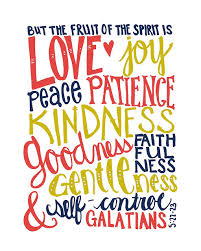 BUT THE FRUIT OF THE SPIRIT IS
LOVE joy
peace PATIENCE
KINDNESS
goodness FAITH
FUL
NESS
gentleness
& self-control
GALATIANS 5:22-23